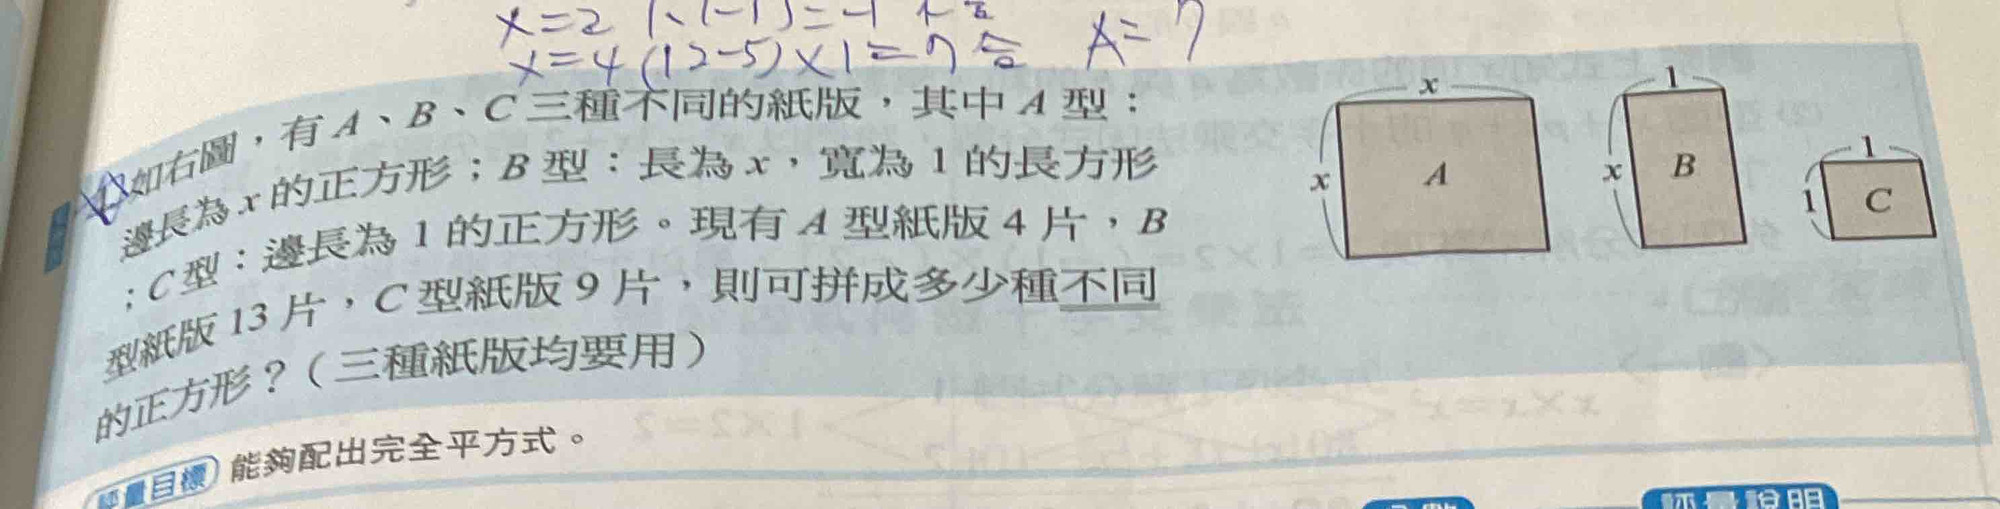 x=2
x=4 (12-5)×1=7 A=7
如右圖,有 A、B、C 三種不同的紙版,其中 A 型:
邊長為 x 的正方形;B 型:長為 x,寬為 1 的長方形
;C 型:邊長為 1 的正方形。現有 A 型紙版 4 片,B
型紙版 13 片,C 型紙版 9 片,則可拼成多少種不同
的正方形?(三種紙版均要用)
x
x
A
1
x
B
1
1
C
評量目標 能夠配出完全平方式。
評量說明